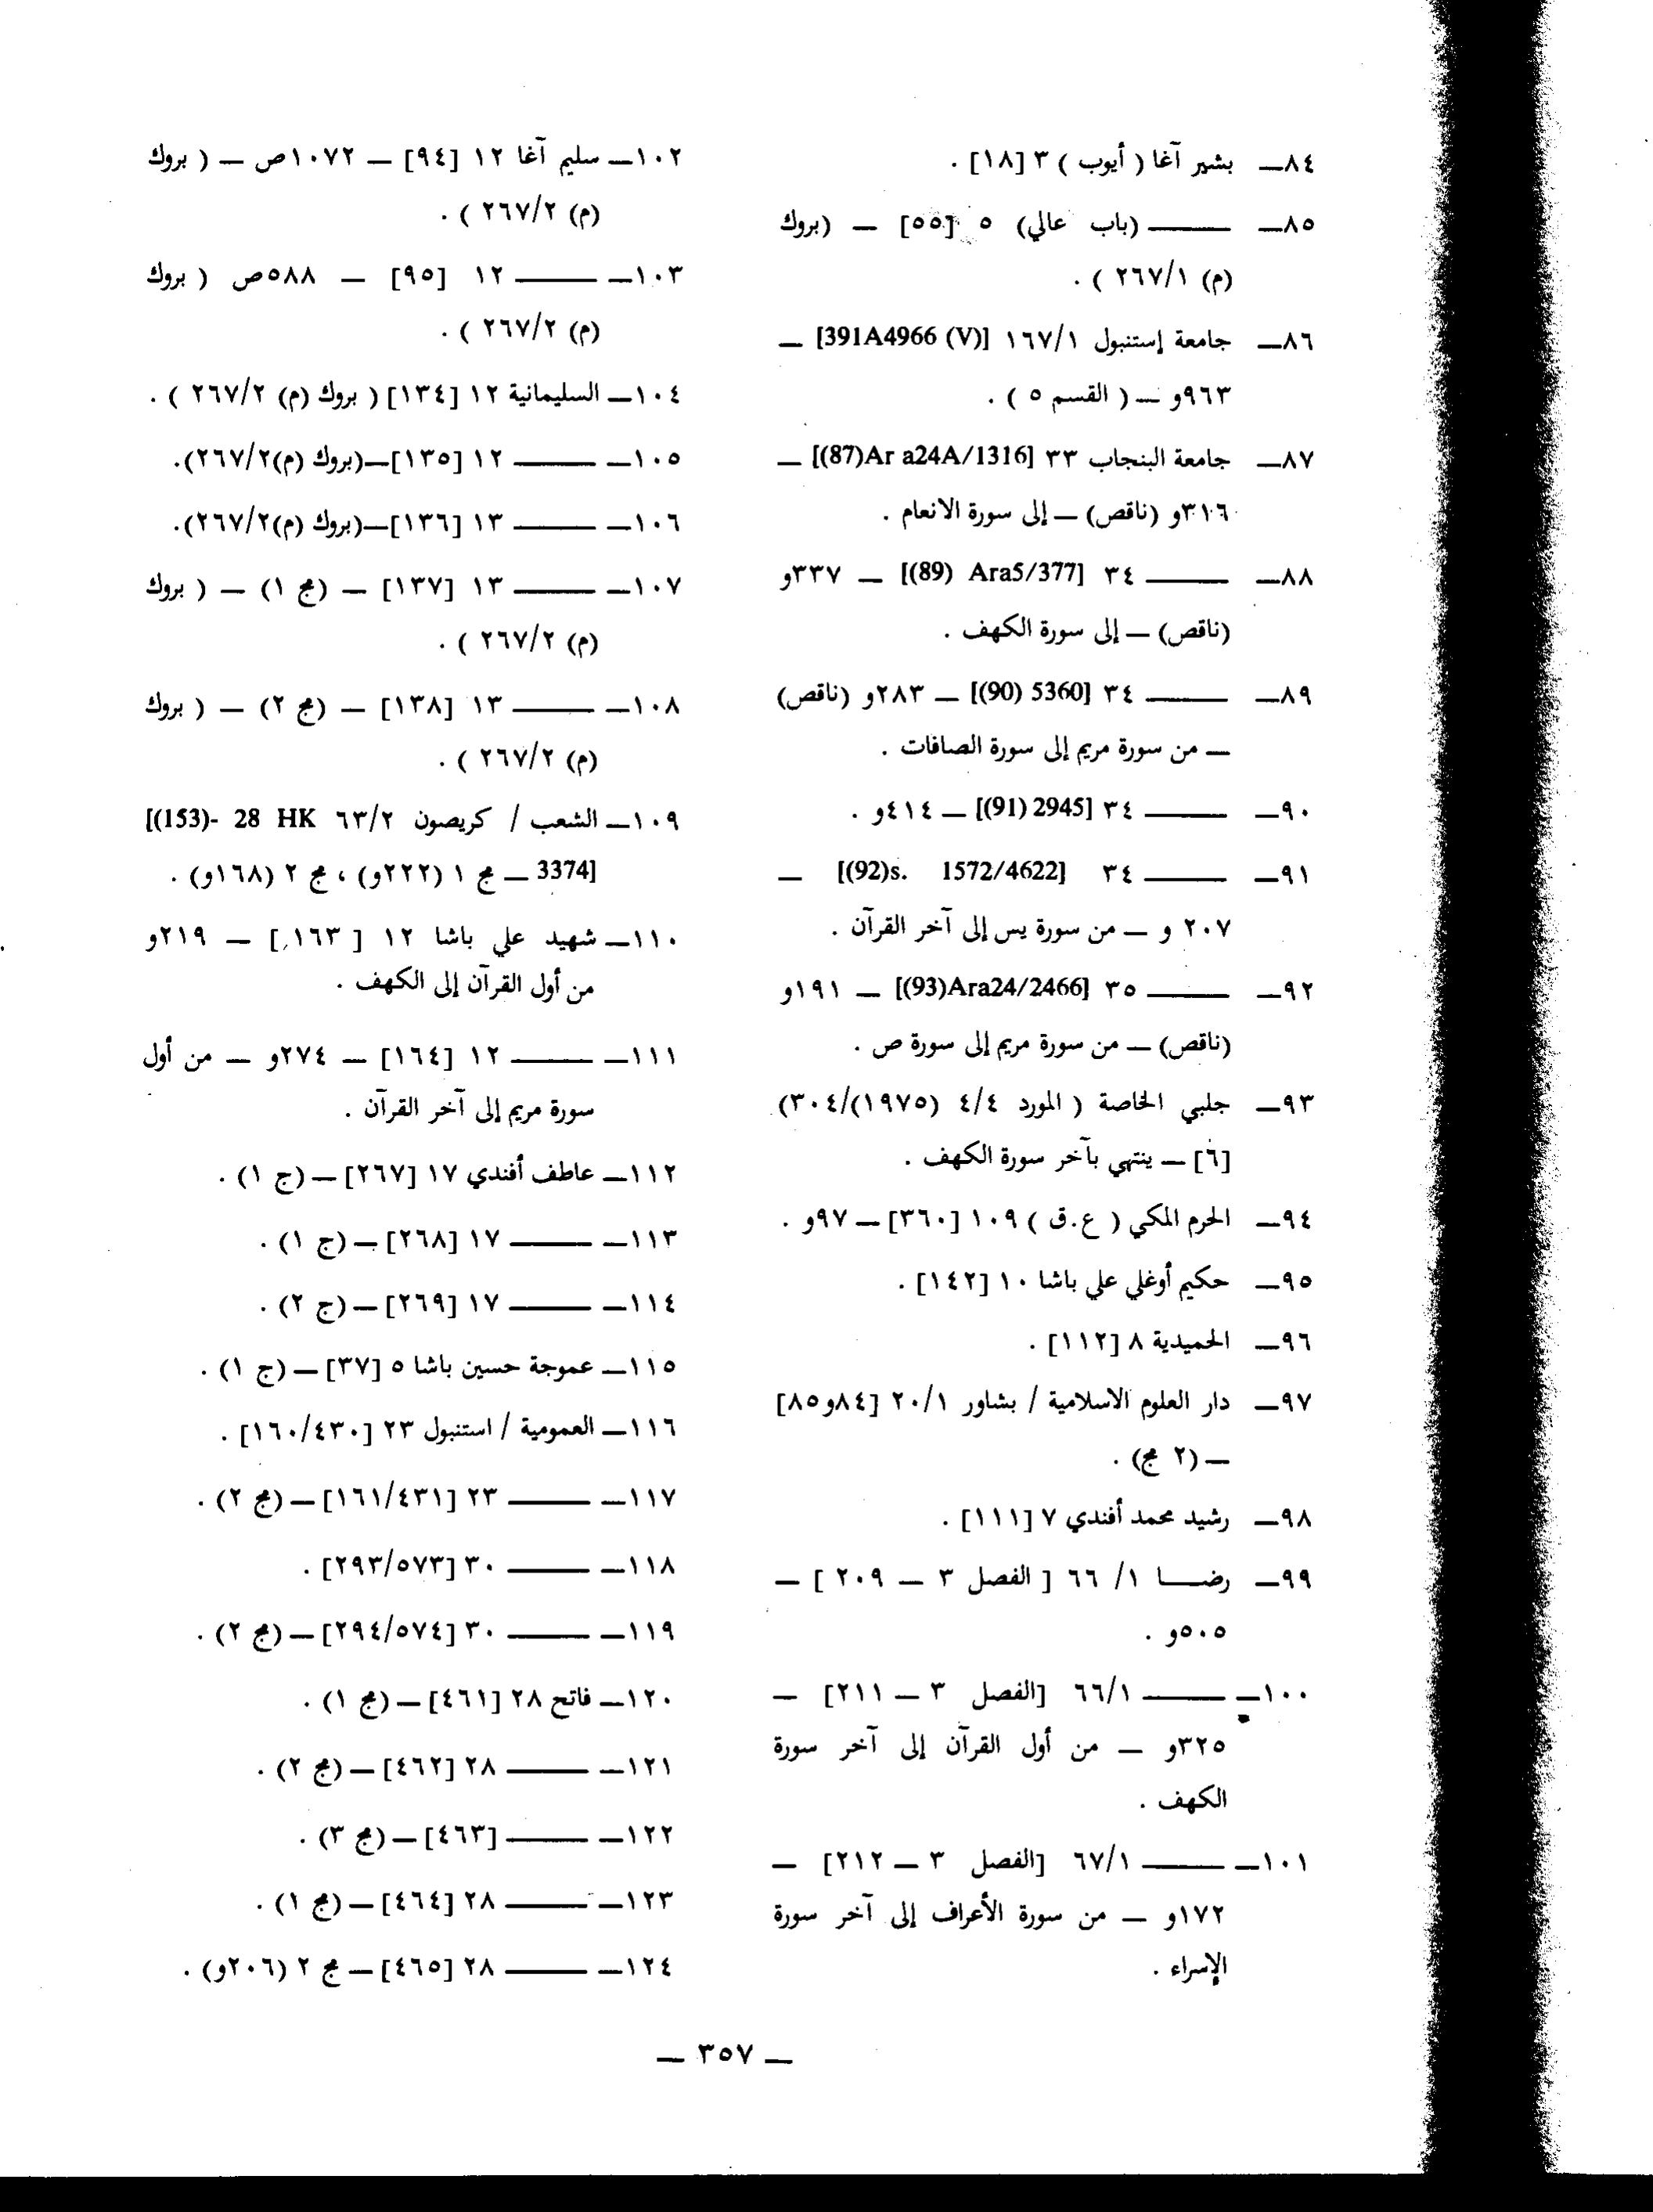 ٨٤ــ بشير آغا ( أيوب ) ٣ [١٨] .
٨٥ــ ــــــــ (باب عالي) ٥ [٥٥] ــ (بروك
(م) ٢٦٧/١ ) .
٨٦ــ جامعة إستنبول ١٦٧/١ [391A4966 (V)] ــ
٩٦٣و ــ ( القسم ٥ ) .
٨٧ــ جامعة البنجاب ٣٣ [(87)Ar a24A/1316] ــ
٣١٦و (ناقص) ــ إلى سورة الانعام .
٨٨ــ ــــــــ ٣٤ [(89) Ara5/377] ــ ٣٣٧و
(ناقص) ــ إلى سورة الكهف .
٨٩ــ ــــــــ ٣٤ [(90) 5360] ــ ٢٨٣و (ناقص)
ــ من سورة مريم إلى سورة الصافات .
٩٠ــ ــــــــ ٣٤ [(91) 2945] ــ ٤١٤و .
٩١ــ ــــــــ ٣٤ [(92)s. 1572/4622] ــ
٢٠٧ و ــ من سورة يس إلى آخر القرآن .
٩٢ــ ــــــــ ٣٥ [(93)Ara24/2466] ــ ١٩١و
(ناقص) ــ من سورة مريم إلى سورة ص .
٩٣ــ جلبي الخاصة ( المورد ٤/٤ (١٩٧٥)/٣٠٤)
[٦] ــ ينتهي بآخر سورة الكهف .
٩٤ــ الحرم المكي ( ع.ق ) ١٠٩ [٣٦٠] ــ ٩٧و .
٩٥ــ حكيم أوغلي علي باشا ١٠ [١٤٢] .
٩٦ــ الحميدية ٨ [١١٢] .
٩٧ــ دار العلوم الاسلامية / بشاور ٢٠/١ [٨٤و٨٥]
ــ (٢ مج) .
٩٨ــ رشيد محمد أفندي ٧ [١١١] .
٩٩ــ رضــا ١/ ٦٦ [ الفصل ٣ ــ ٢٠٩ ] ــ
٥٠٥و .
١٠٠ــ ــــــــ ٦٦/١ [الفصل ٣ ــ ٢١١] ــ
٣٢٥و ــ من أول القرآن إلى آخر سورة
الكهف .
١٠١ــ ــــــــ ٦٧/١ [الفصل ٣ ــ ٢١٢] ــ
١٧٢و ــ من سورة الأعراف إلى آخر سورة
الإسراء .
١٠٢ــ سليم آغا ١٢ [٩٤] ــ ١٠٧٢ص ــ ( بروك
(م) ٢٦٧/٢ ) .
١٠٣ــ ــــــــ ١٢ [٩٥] ــ ٥٨٨ص ( بروك
(م) ٢٦٧/٢ ) .
١٠٤ــ السليمانية ١٢ [١٣٤] ( بروك (م) ٢٦٧/٢ ) .
١٠٥ــ ــــــــ ١٢ [١٣٥]ــ(بروك (م)٢٦٧/٢).
١٠٦ــ ــــــــ ١٣ [١٣٦]ــ(بروك (م)٢٦٧/٢).
١٠٧ــ ــــــــ ١٣ [١٣٧] ــ (مج ١) ــ ( بروك
(م) ٢٦٧/٢ ) .
١٠٨ــ ــــــــ ١٣ [١٣٨] ــ (مج ٢) ــ ( بروك
(م) ٢٦٧/٢ ) .
١٠٩ــ الشعب / كريصون ٦٣/٢ [(153)- 28 HK
3374] ــ مج ١ (٢٢٢و) ، مج ٢ (١٦٨و) .
١١٠ــ شهيد علي باشا ١٢ [ ١٦٣] ــ ٢١٩و
من أول القرآن إلى الكهف .
١١١ــ ــــــــ ١٢ [١٦٤] ــ ٢٧٤و ــ من أول
سورة مريم إلى آخر القرآن .
١١٢ــ عاطف أفندي ١٧ [٢٦٧] ــ (ج ١) .
١١٣ــ ــــــــ ١٧ [٢٦٨] ــ (ج ١) .
١١٤ــ ــــــــ ١٧ [٢٦٩] ــ (ج ٢) .
١١٥ــ عموجة حسين باشا ٥ [٣٧] ــ (ج ١) .
١١٦ــ العمومية / استنبول ٢٣ [١٦٠/٤٣٠] .
١١٧ــ ــــــــ ٢٣ [١٦١/٤٣١] ــ (مج ٢) .
١١٨ــ ــــــــ ٣٠ [٢٩٣/٥٧٣] .
١١٩ــ ــــــــ ٣٠ [٢٩٤/٥٧٤] ــ (مج ٢) .
١٢٠ــ فاتح ٢٨ [٤٦١] ــ (مج ١) .
١٢١ــ ــــــــ ٢٨ [٤٦٢] ــ (مج ٢) .
١٢٢ــ ــــــــ [٤٦٣] ــ (مج ٣) .
١٢٣ــ ــــــــ ٢٨ [٤٦٤] ــ (مج ١) .
١٢٤ــ ــــــــ ٢٨ [٤٦٥] ــ مج ٢ (٢٠٦و) .
ــ ٣٥٧ ــ